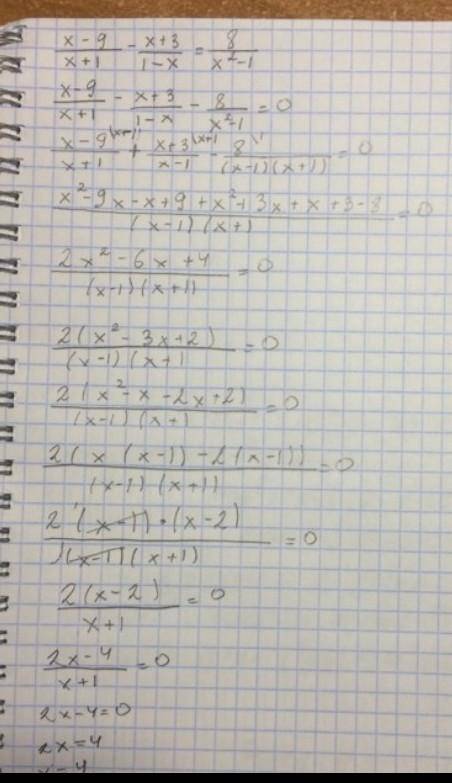 (x-9)/(x+1) - (x+3)/(1-x) = 8/(x²-1)
(x-9)/(x+1) - (x+3)/(1-x) - 8/(x²-1) = 0
(x-9)/(x+1) + (x+3)/(x-1) - 8/((x-1)(x+1)) = 0
(x²-9x-x+9+x²+3x+x+3-8)/((x-1)(x+1) = 0
(2x²-6x+4)/((x-1)(x+1)) = 0
2(x²-3x+2)/((x-1)(x+1) = 0
2(x²-x-2x+2)/((x-1)(x+1) = 0
2(x(x-1)-2(x-1))/((x-1)(x+1)) = 0
2(x-1)·(x-2)/((x-1)(x+1)) = 0
2(x-2)/(x+1) = 0
(2x-4)/(x+1) = 0
2x-4=0
2x=4